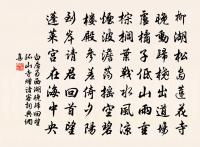 柳湖松島蓮花寺
晚動歸橈出道場
盧橘子低山雨重
棕櫚葉戰水風涼
煙波澹蕩搖空碧
樓殿參差倚夕陽
到岸請君回首望
蓬萊宮在海中央
白居易西湖晚歸回望
孤山寺贈諸客詩詞典網
集